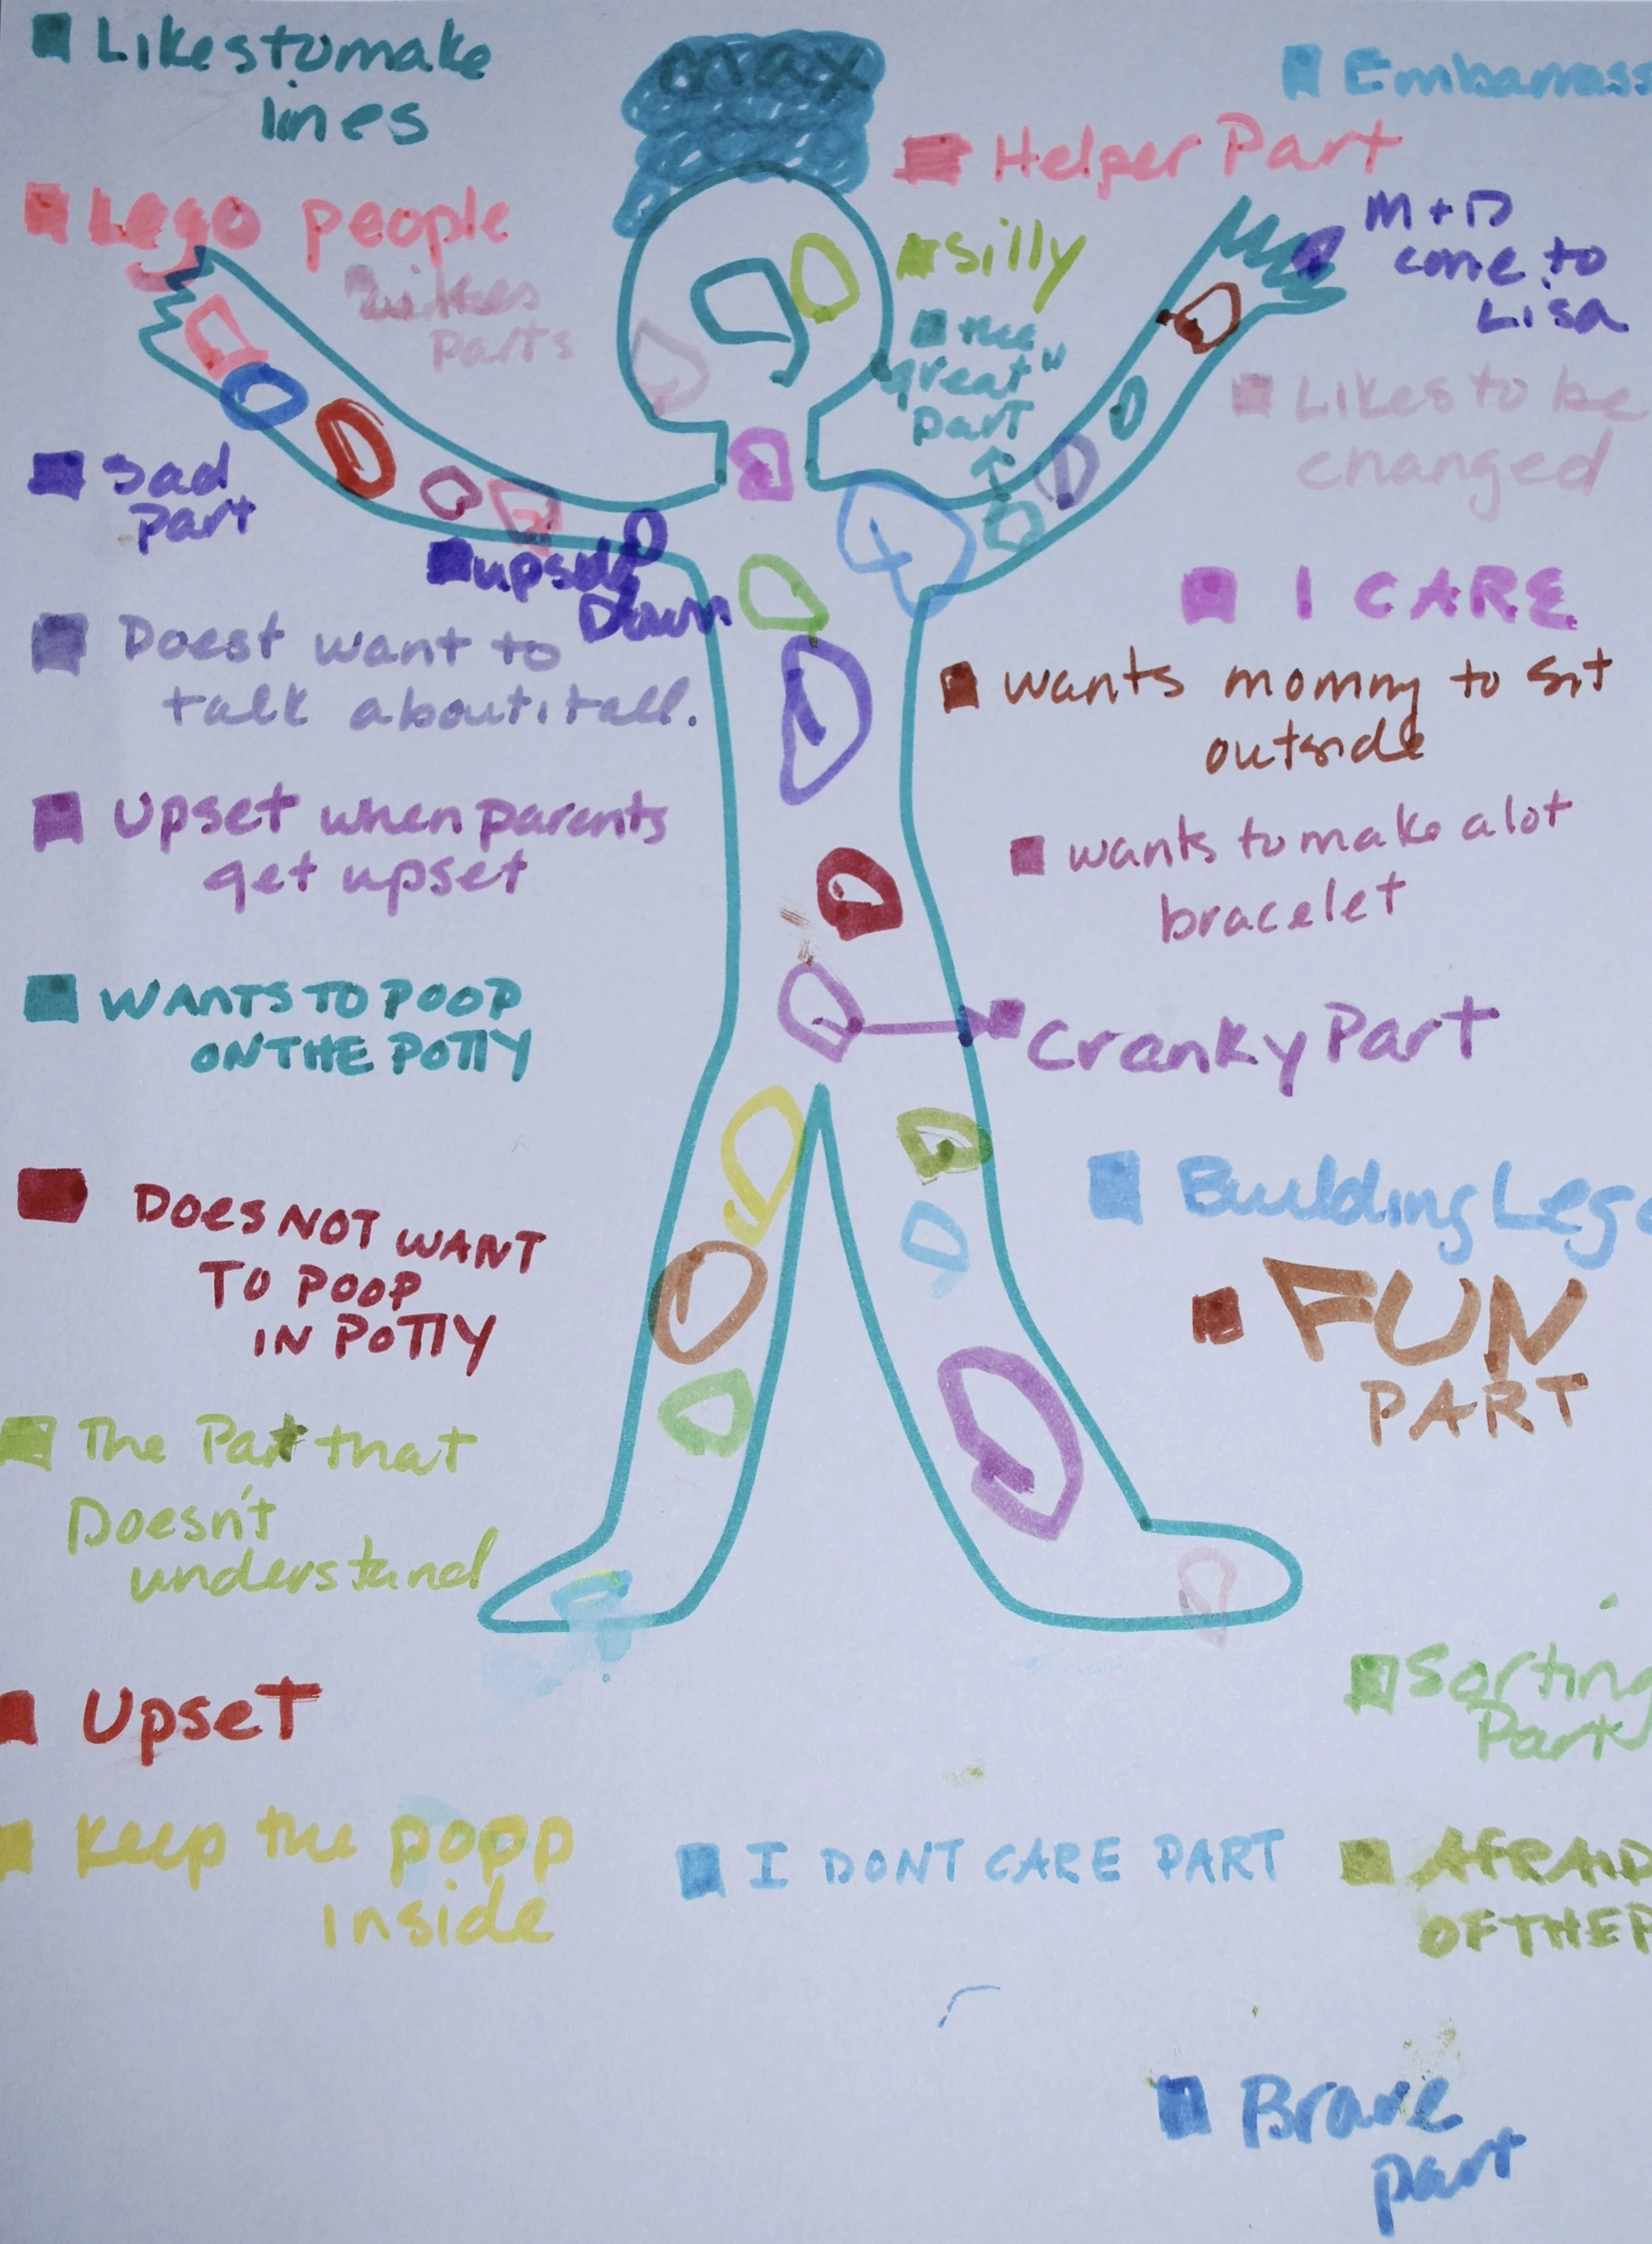 max
Likes to make
lines
Lego people
Likes
parts
Sad
part
upside
Down
Doest want to
talk about it all.
Upset when parents
get upset
WANTS TO POOP
ON THE POTTY
DOES NOT WANT
TO POOP
IN POTTY
The Part that
Doesn't
understand
Upset
Keep the popp
inside
Embarrass
Helper Part
silly
the
"great"
part
M + D
come to
Lisa
Likes to be
changed
I CARE
wants mommy to sit
outside
wants to make a lot
bracelet
Cranky Part
Building Lego
FUN
PART
Sorting
Part
I DONT CARE PART
AFRAID
OF THE P
Brave
part